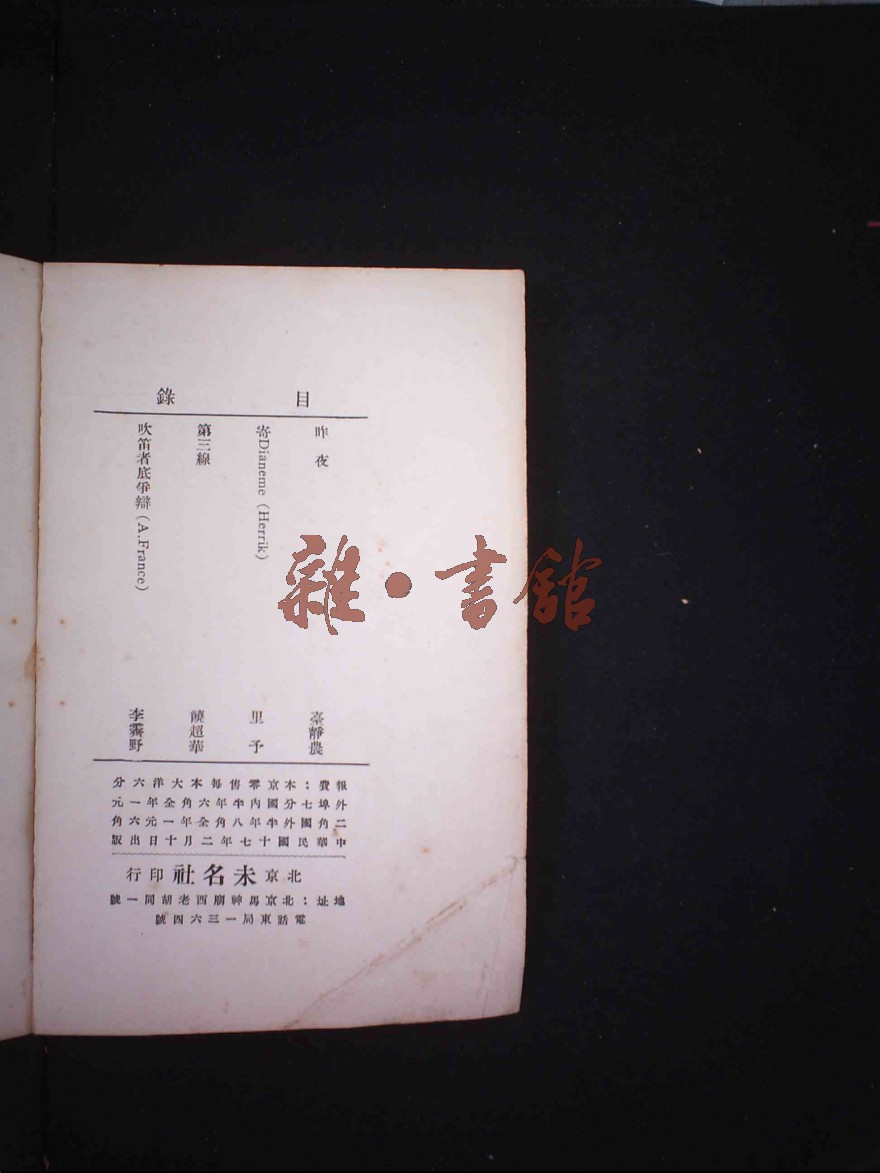 目錄
昨夜
臺靜農
寄Dianeme (Herrik)
里予
第三線
饒超華
吹笛者底爭辯 (A.France)
李霽野
報費：本京零售每本大洋六分
外埠七分國內半年六角全年一元
二角國外半年八角全年一元六角
中華民國十七年二月十日出版
北京未名社印行
地址：北京馬神廟西老胡同一號
電話東局一三六四號
雜·書館